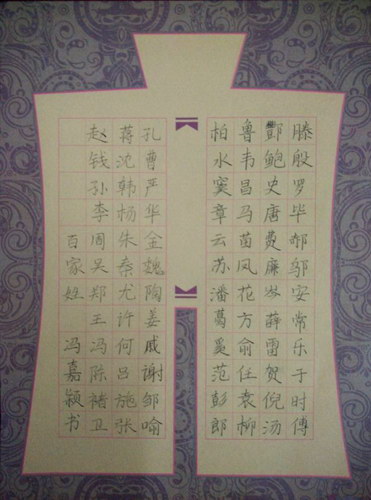 百家姓 冯嘉颖书
赵钱孙李周吴郑王冯陈褚卫
蒋沈韩杨朱秦尤许何吕施张
孔曹严华金魏陶姜戚谢邹喻
柏水窦章云苏潘葛奚范彭郎
鲁韦昌马苗凤花方俞任袁柳
酆鲍史唐费廉岑薛雷贺倪汤
滕殷罗毕郝邬安常乐于时傅